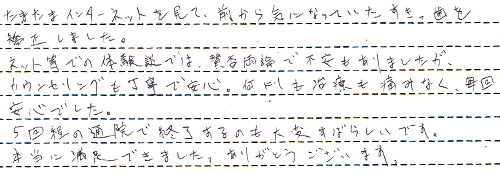 たまたまインターネットを見て、前から気になっていたすきっ歯を
矯正しました。
ネット等での体験談では、賛否両論で不安もありましたが、
カウンセリングも丁寧で安心。何よりも治療も痛みなく、毎回
安心でした。
5回程の通院で終了するのも大変すばらしいです。
本当に満足できました。ありがとうございます。